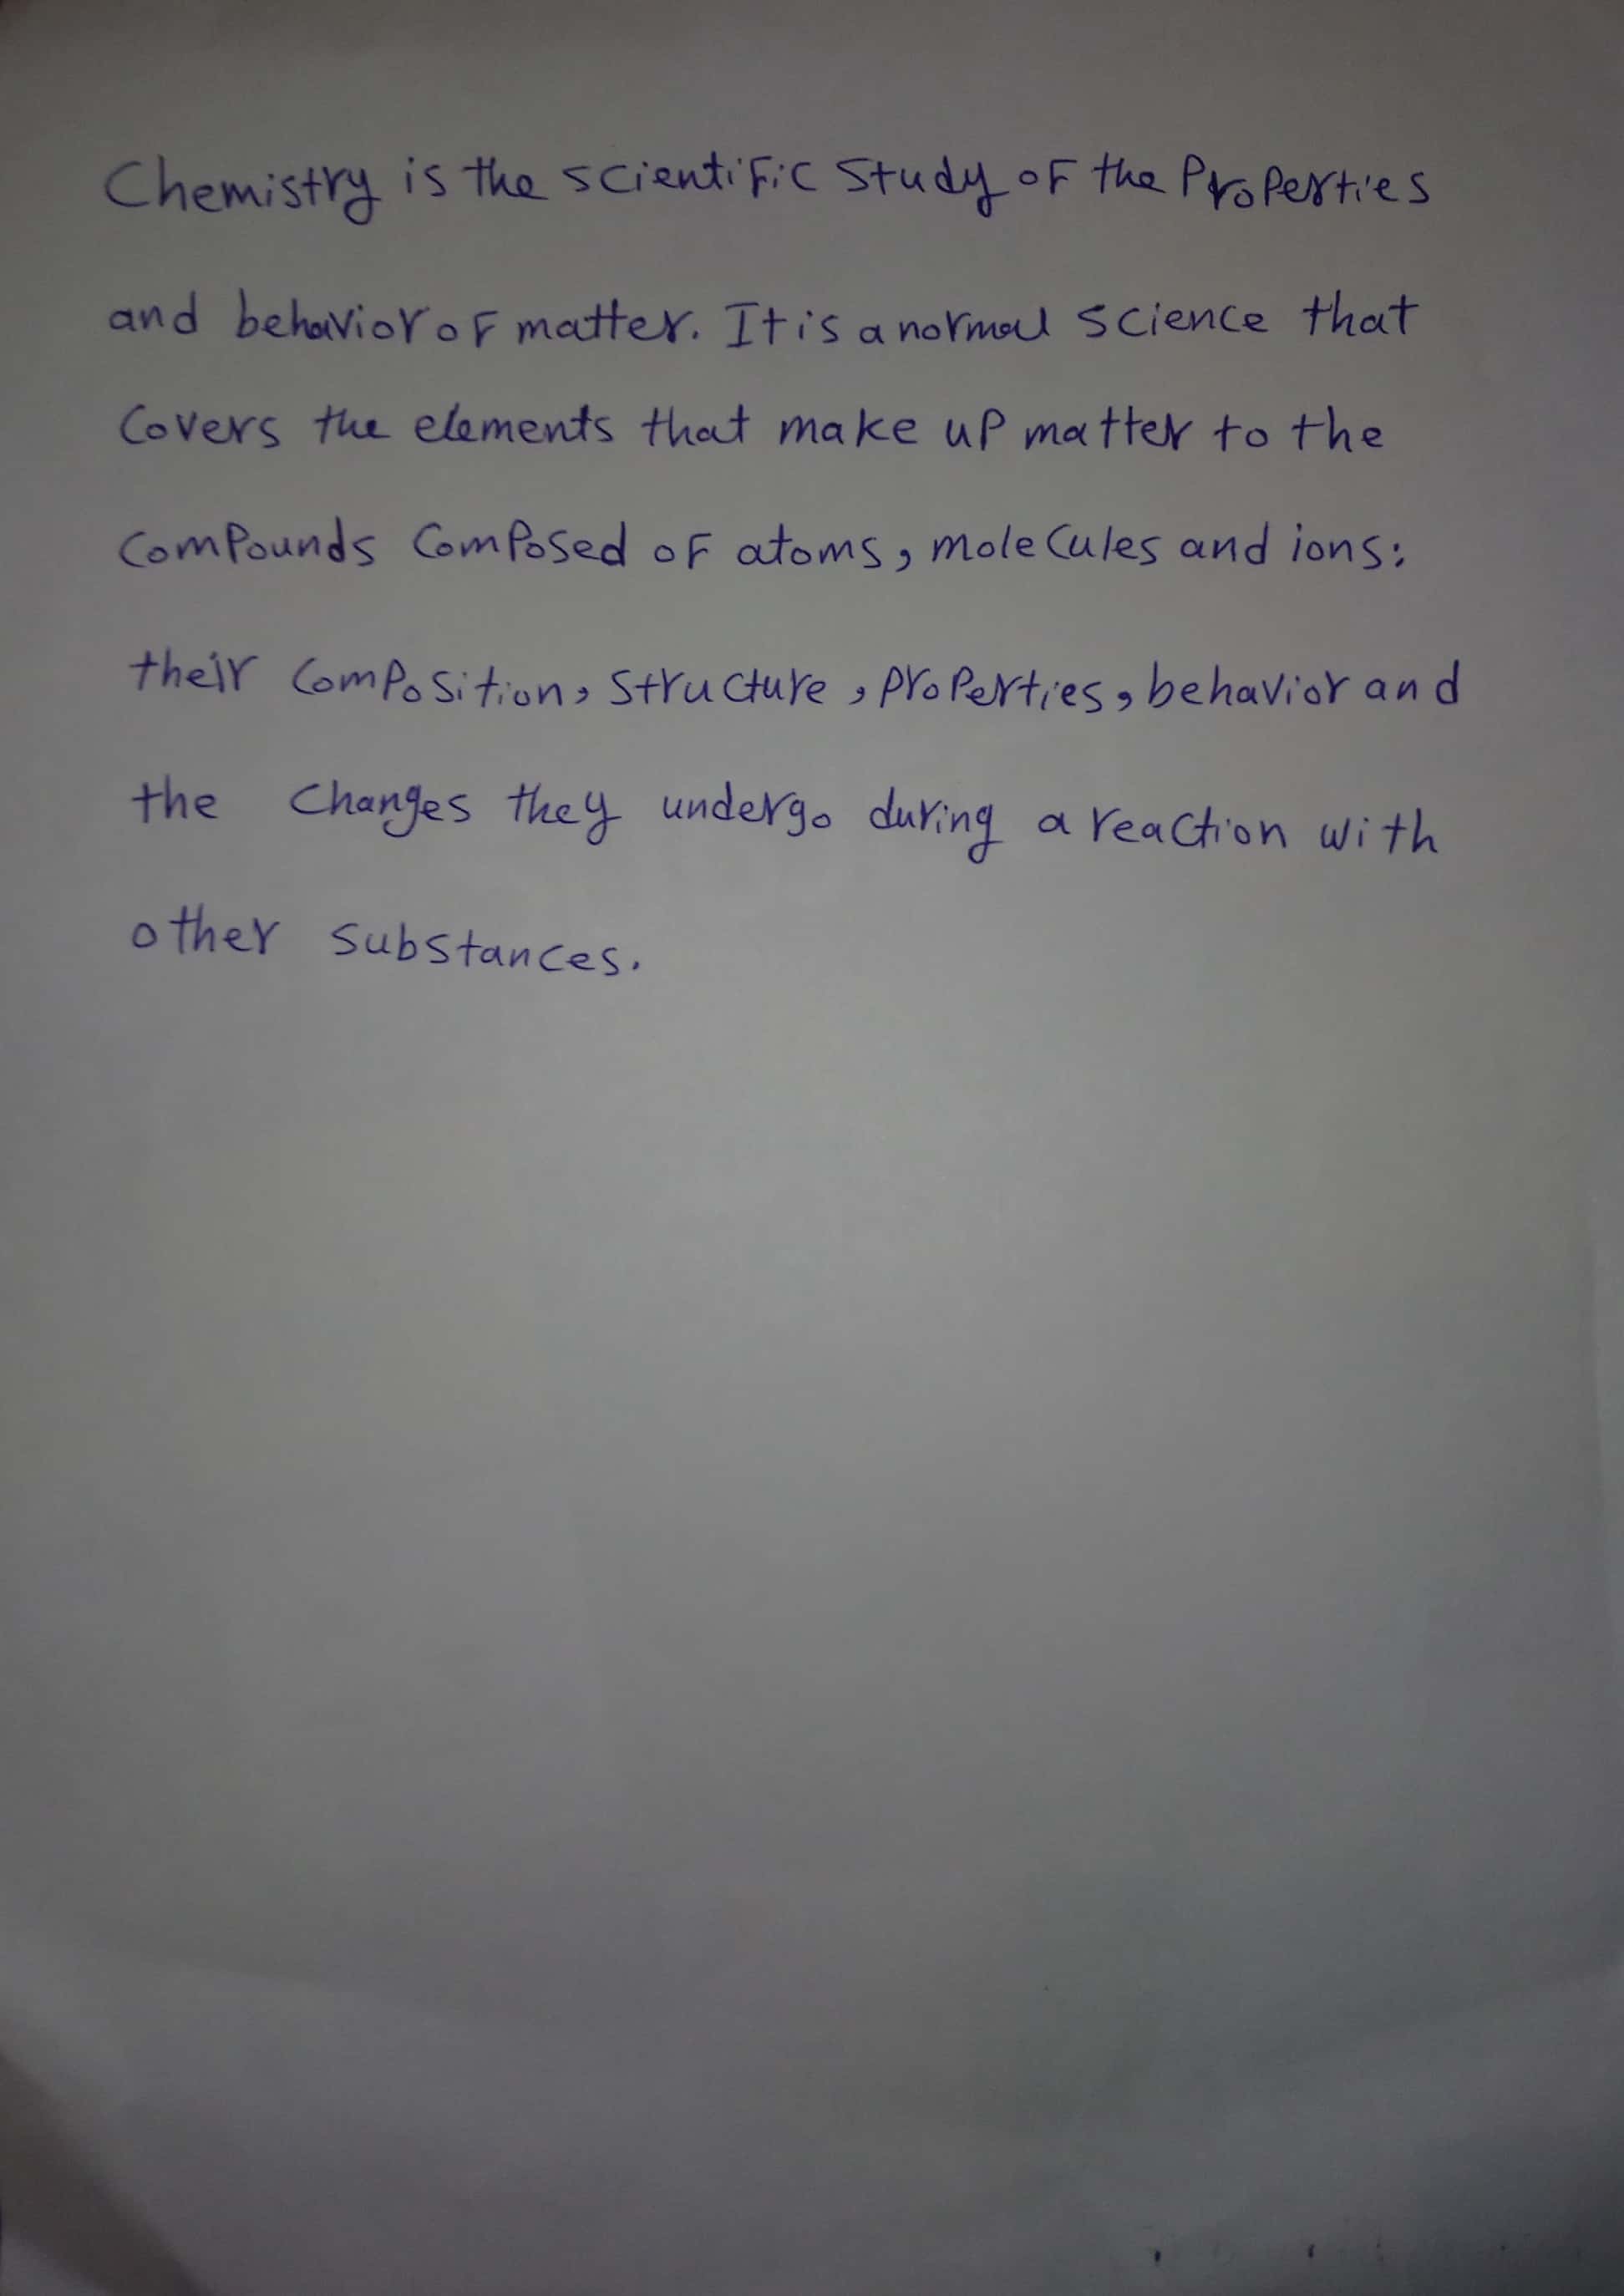 Chemistry is the scientific study of the Properties
and behavior of matter. It is a normal science that
Covers the elements that make up matter to the
Compounds Composed of atoms, molecules and ions:
their Composition, structure, properties, behavior and
the Changes they undergo during a reaction with
other substances.